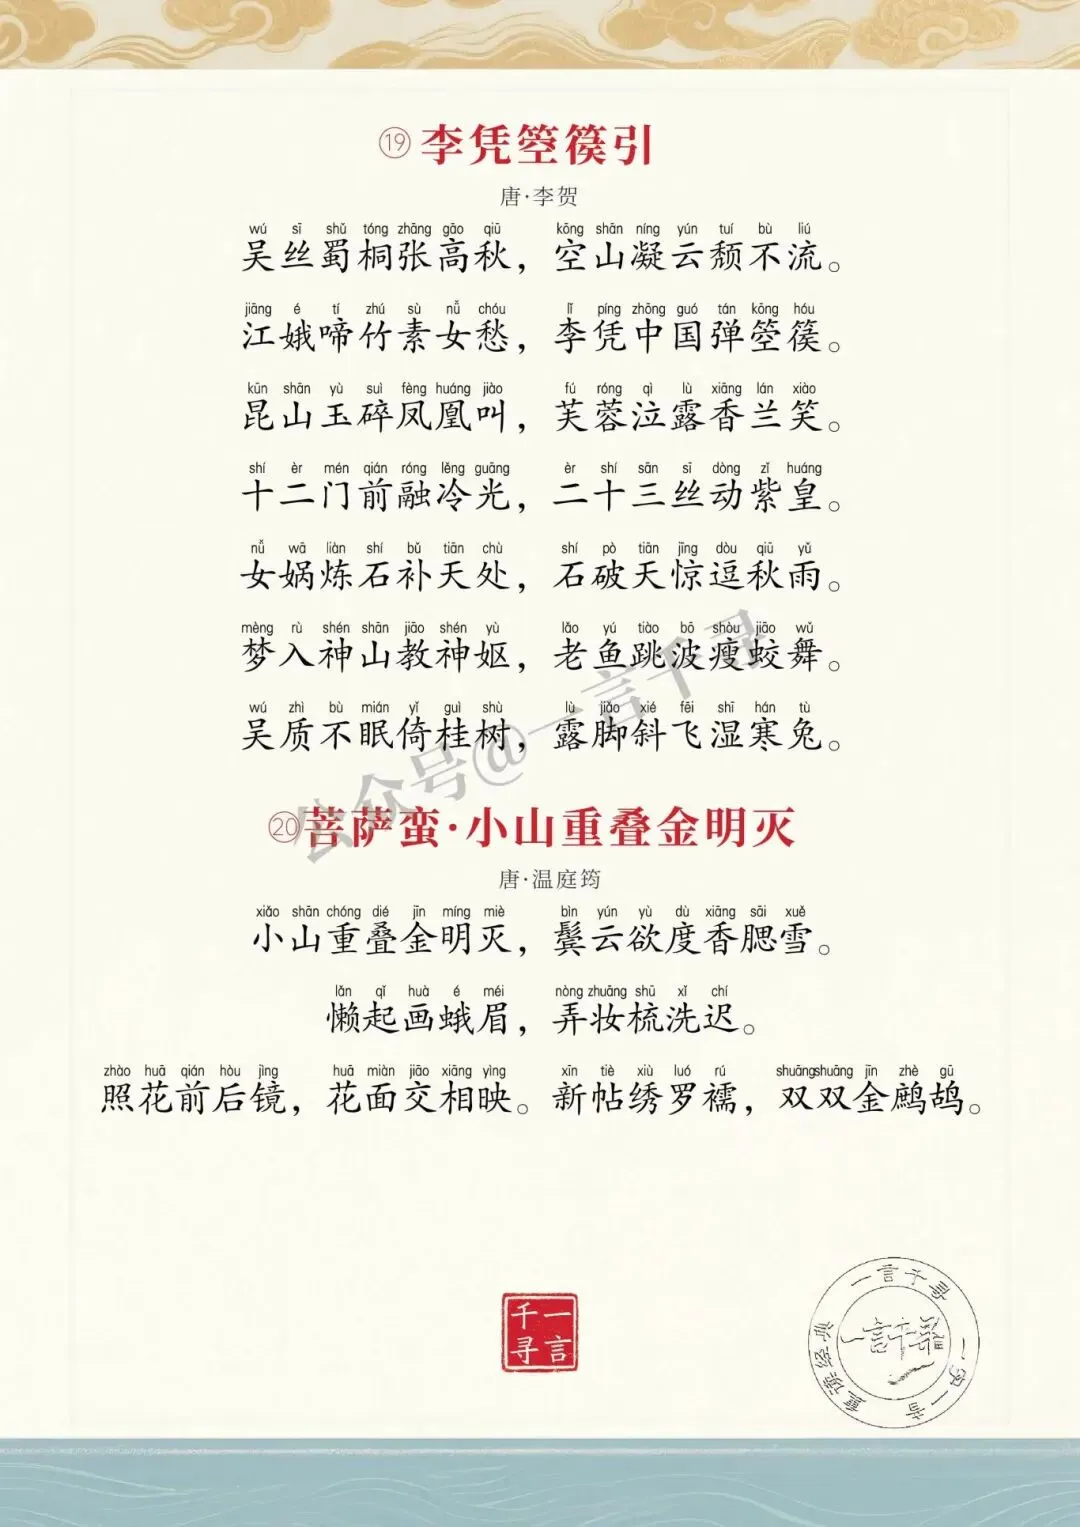 ⑲李凭箜篌引
唐·李贺
wú sī shǔ tóng zhāng gāo qiū kōng shān níng yún tuí bù liú
吴丝蜀桐张高秋，空山凝云颓不流。
jiāng é tí zhú sù nǚ chóu lǐ píng zhōng guó tán kōng hóu
江娥啼竹素女愁，李凭中国弹箜篌。
kūn shān yù suì fèng huáng jiào fú róng qì lù xiāng lán xiào
昆山玉碎凤凰叫，芙蓉泣露香兰笑。
shí èr mén qián róng lěng guāng èr shí sān sī dòng zǐ huáng
十二门前融冷光，二十三丝动紫皇。
nǚ wā liàn shí bǔ tiān chù shí pò tiān jīng dòu qiū yǔ
女娲炼石补天处，石破天惊逗秋雨。
mèng rù shén shān jiāo shén yù lǎo yú tiào bō shòu jiāo wǔ
梦入神山教神妪，老鱼跳波瘦蛟舞。
wú zhì bù mián yǐ guì shù lù jiǎo xié fēi shī hán tù
吴质不眠倚桂树，露脚斜飞湿寒兔。
公众号@一言千寻
⑳菩萨蛮·小山重叠金明灭
唐·温庭筠
xiǎo shān chóng dié jīn míng miè bìn yún yù dù xiāng sāi xuě
小山重叠金明灭，鬓云欲度香腮雪。
lǎn qǐ huà é méi nòng zhuāng shū xǐ chí
懒起画蛾眉，弄妆梳洗迟。
zhào huā qián hòu jìng huā miàn jiāo xiāng yìng xīn tiè xiù luó rú shuāng shuāng jīn zhè gū
照花前后镜，花面交相映。新帖绣罗襦，双双金鹧鸪。
一言千寻
一言千寻
一字一音
重读经典
一言千寻